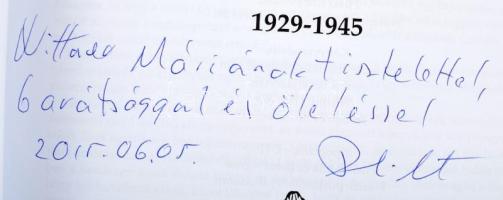 1929-1945
Wittner Máriának tisztelettel,
barátsággal és öleléssel
2015.06.05.